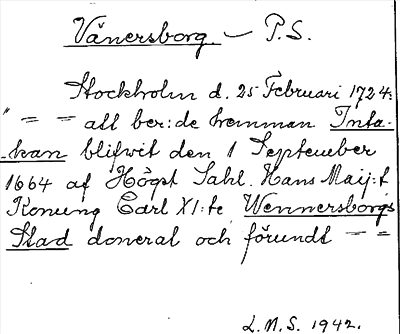 Vänersborg. — P.S.
Stockholm d. 25 Februari 1724:
" = = att ber:de hemman Inta-
-kan blifwit den 1 September
1664 af Högst Sahl. Hans Maij:t
Konung Carl XI:te Wennersborgs
Stad donerat och förundt = =
L.M.S. 1942.